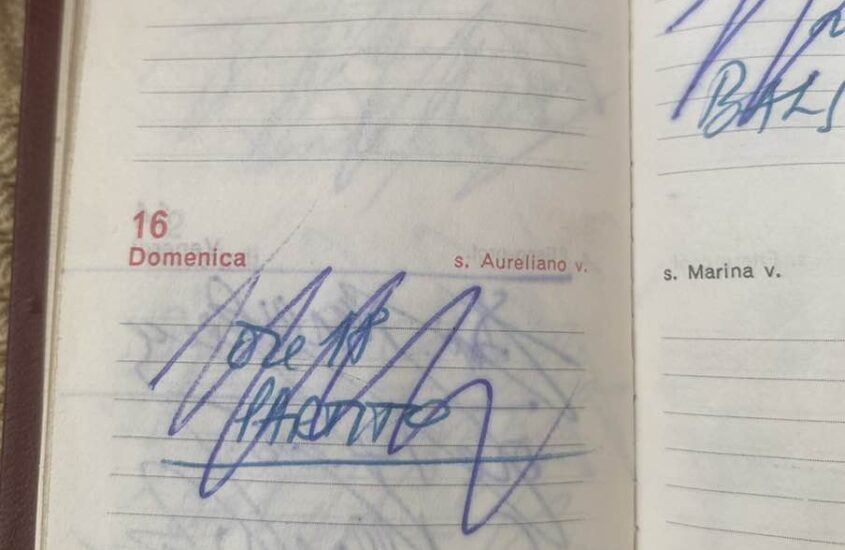 16
Domenica
s. Aureliano v.
ore 18
PARTITO
BALS
s. Marina v.